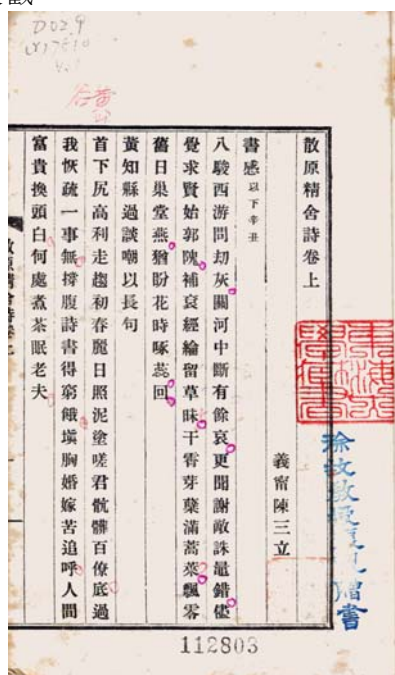 D02.9
V.1
散原精舍詩卷上
義甯陳三立
書感以下辛丑
八駿西游問劫灰關河中斷有餘哀更聞謝敵誅鼂錯儘
覺求賢始郭隗補袞經綸留草昧干霄芽蘖滿蒿萊飄零
舊日巢堂燕猶盼花時啄蕊回
黃知縣過談嘲以長句
首下尻高利走趨初春麗日照泥塗嗟君骯髒百僚底過
我恢疏一事無撐腹詩書得窮餓塡胸婚嫁苦追呼人間
富貴換頭白何處煮茶眠老夫
徐故教授復觀贈書
112803